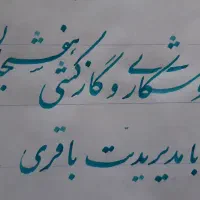 وشکاری و گازکشی هفشجا
با مدیریت باقری